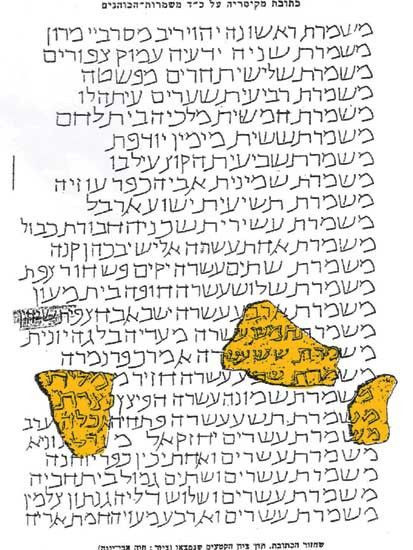 כתובת מקיסריה על כ״ד משמרות־הכוהנים
משמרת ראשונה יהויריב מסרביי מרון
משמרת שניה ידעיה עמוק צפורים
משמרת שלישית חרים מפשטה
משמרת רביעית שערים עיתהלו
משמרת חמשית מלכיה בית לחם
משמרת ששית מימין יודפת
משמרת שביעית הקוץ עילבו
משמרת שמינית אביה כפר עוזיה
משמרת תשיעית ישוע ארבל
משמרת עשירית שכניה חבורת כבול
משמרת אחת עשרה אלישיב כהן קנה
משמרת שתים עשרה יקים פשחור צפת
משמרת שלוש עשרה חופה בית מעון
משמרת עשרה ישבאב
משמרת חמש עשרה מעדיה בלגה יונית
משמרת שש עשרה אמר כפר נמרה
משמרת שבע עשרה חזיר ממליח
משמרת שמונה עשרה הפיצץ נצרת
משמרת תשע עשרה פתחיה אכלה ערב
משמרת עשרים יחזקאל מגדל נוניא
משמרת עשרים ואחת יכין כפר יוחנה
משמרת עשרים ושתים גמול בית חביה
משמרת עשרים ושלוש דליה גנתון צלמין
משמרת עשרים וארבע מעזיה חמת אריח
שחזור הכתובת. תוך ציון הקטעים שנמצאו (ציור: חיה אבי־יונה)